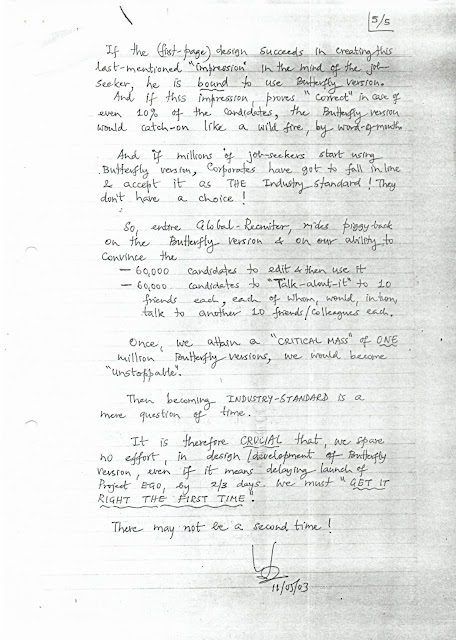 5/5
If the (first-page) design succeeds in creating this
last-mentioned "impression" in the mind of the job-
seeker, he is bound to use Butterfly version.
And if this impression, proves "correct" in case of
even 10% of the candidates, the Butterfly version
would catch-on like a wild fire, by word-of-mouth.
And if millions of job-seekers start using
Butterfly version, Corporates have got to fall in line
& accept it as THE Industry standard! They
don't have a choice!
So, entire Global-Recruiter, rides piggy-back
on the Butterfly version & on our ability to
Convince the
— 60,000 candidates to edit & then use it
— 60,000 candidates to "Talk-about-it" to 10
friends each, each of whom, would, in turn,
talk to another 10 friends/colleagues each.
Once, we attain a "CRITICAL MASS" of ONE
million Butterfly versions, we would become
"unstoppable".
Then becoming INDUSTRY-STANDARD is a
mere question of time.
It is therefore CRUCIAL that, we spare
no effort in design/development of Butterfly
version, even if it means delaying launch of
Project EGO, by 2/3 days. We must "GET IT
RIGHT THE FIRST TIME".
There may not be a second time!
11/05/03